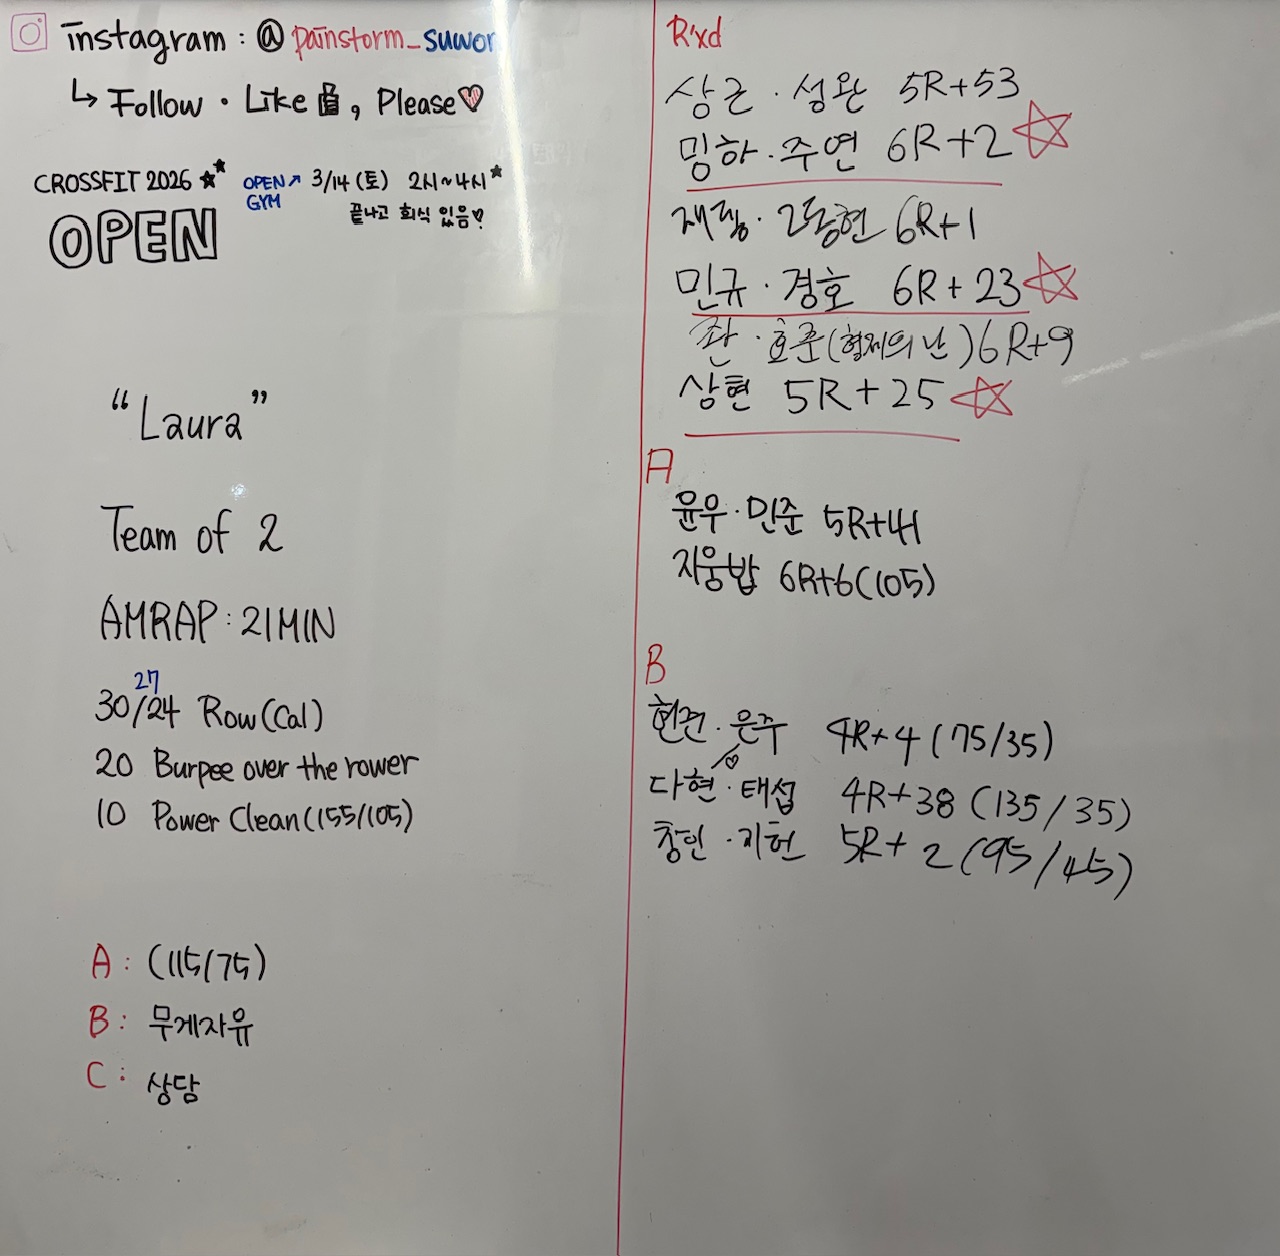 instagram : @painstorm_suwon
↳ Follow · Like , Please♡
CROSSFIT 2026 ★★
OPEN
OPEN GYM ↗ 3/14 (토) 2시~4시*
끝나고 회식 있음♡
"Laura"
Team of 2
AMRAP : 21MIN
27
30/24 Row(Cal)
20 Burpee over the rower
10 Power Clean(155/105)
A : (115/75)
B : 무게자유
C : 상담
R'xd
상근 · 성완 5R+53
밍하 · 주연 6R+2 ☆
재림 · 2동현 6R+1
민규 · 경호 6R+23 ☆
호준(형제의난) 6R+9
상현 5R+25 ☆
A
윤우 · 민준 5R+41
지웅밥 6R+6(105)
B
은주 4R+4 (75/35)
♡
다현 · 태섭 4R+38 (135/35)
창인 · 지헌 5R+2 (95/45)